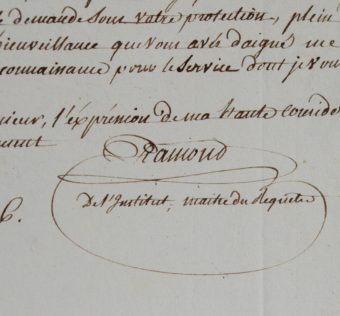 demande sous votre protection, plein
bienveillance que vous avés daigné me
connaissance pour le service dont je vou
sieur, l'éxpression de ma haute conside
Ramond
De l'Institut, maitre du Requetes